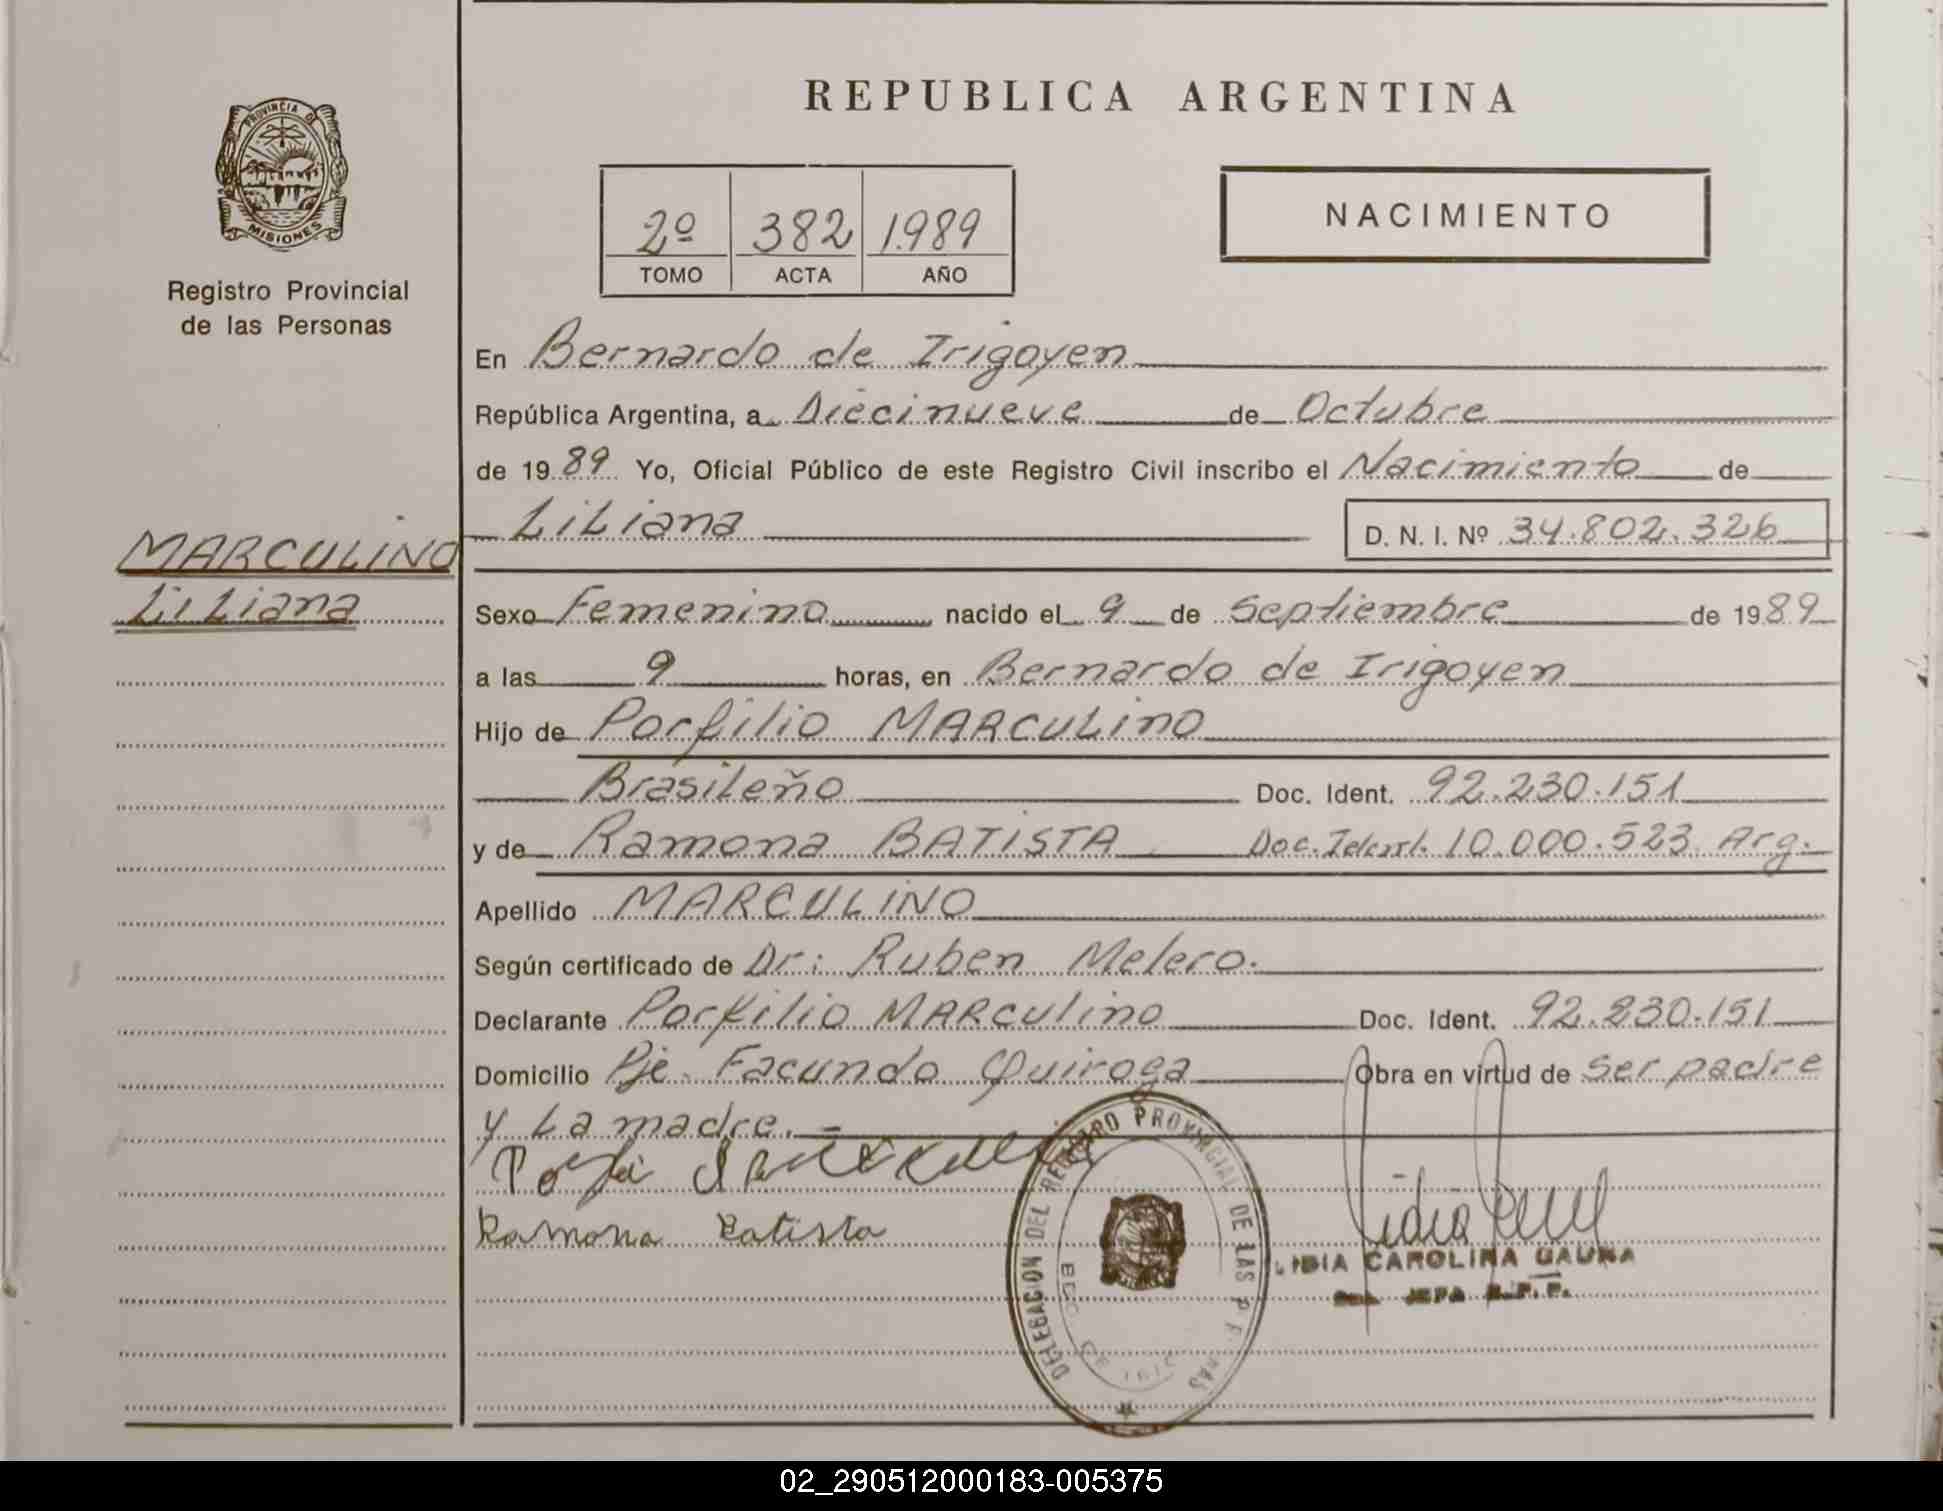 REPUBLICA ARGENTINA
PROVINCIA DE
MISIONES
Registro Provincial
de las Personas
2º 382 1.989
TOMO ACTA AÑO
NACIMIENTO
En Bernardo de Irigoyen
República Argentina, a Diecinueve de Octubre
de 1989 Yo, Oficial Público de este Registro Civil inscribo el Nacimiento de
Liliana D. N. I. Nº 34.802.326
MARCULINO
Liliana
Sexo Femenino nacido el 9 de Septiembre de 1989
a las 9 horas, en Bernardo de Irigoyen
Hijo de Porfilio MARCULINO
Brasileño Doc. Ident. 92.230.151
y de Ramona BATISTA Doc. Ident. 10.000.523 Arg.
Apellido MARCULINO
Según certificado de Dr: Ruben Melero.
Declarante Porfilio MARCULINO Doc. Ident. 92.230.151
Domicilio Pje. Facundo Quiroga Obra en virtud de ser padre
y La madre.
Ramona Batista
DELEGACION DEL REGISTRO PROVINCIAL DE LAS
LIDIA CAROLINA GAUNA
JEFA R.P.P.
02_290512000183-005375